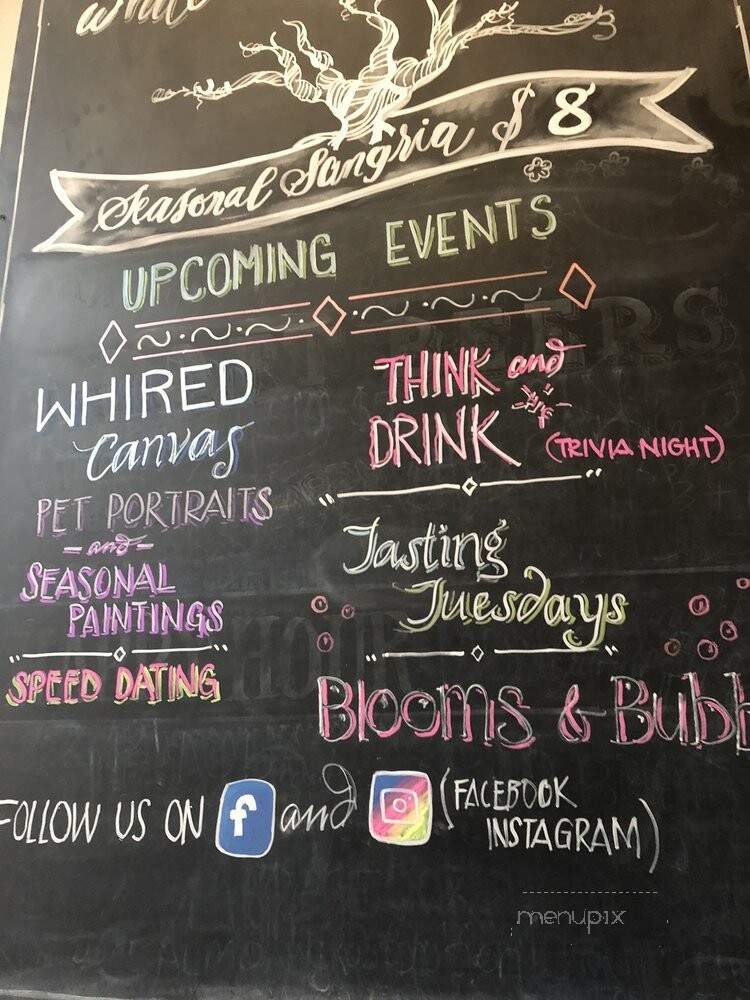 Seasonal Sangria $8
UPCOMING EVENTS
WHIRED
Canvas
PET PORTRAITS
-and-
SEASONAL
PAINTINGS
SPEED DATING
THINK and
DRINK (TRIVIA NIGHT)
Tasting
Tuesdays
Blooms & Bubb
FOLLOW US ON f and (FACEBOOK
INSTAGRAM)
menupix